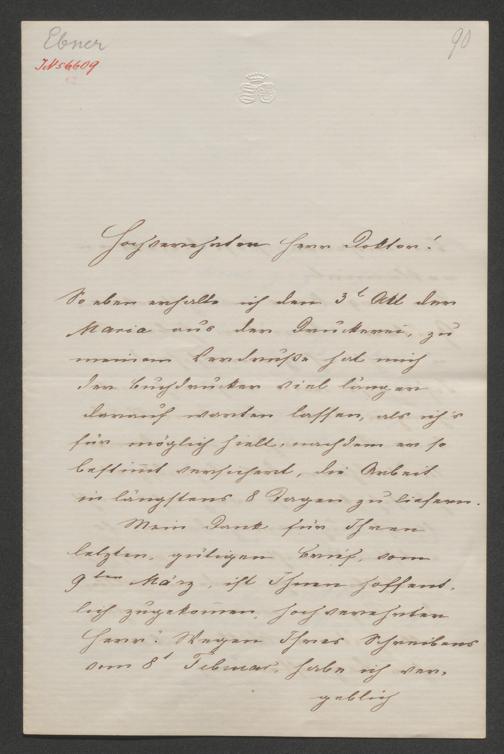 Ebner
90
JN 56609
Hochverehrter Herr Doktor!
So eben erhalte ich den 3t Akt der
Maria aus der Druckerei, zu
meinem Verdruße hat mich
der Buchdrucker viel länger
darauf warten lassen, als ich's
für möglich hielt, nachdem er so
bestimt versichert, die Arbeit
in längstens 8 Tagen zu liefern.
Mein Dank für Ihren
letzten, gütigen Brief, vom
9ten März, ist Ihnen hoffent-
lich zugekomen, hochverehrter
Herr! Wegen Ihres Schreibens
vom 8t Februar, habe ich ver-
geblich